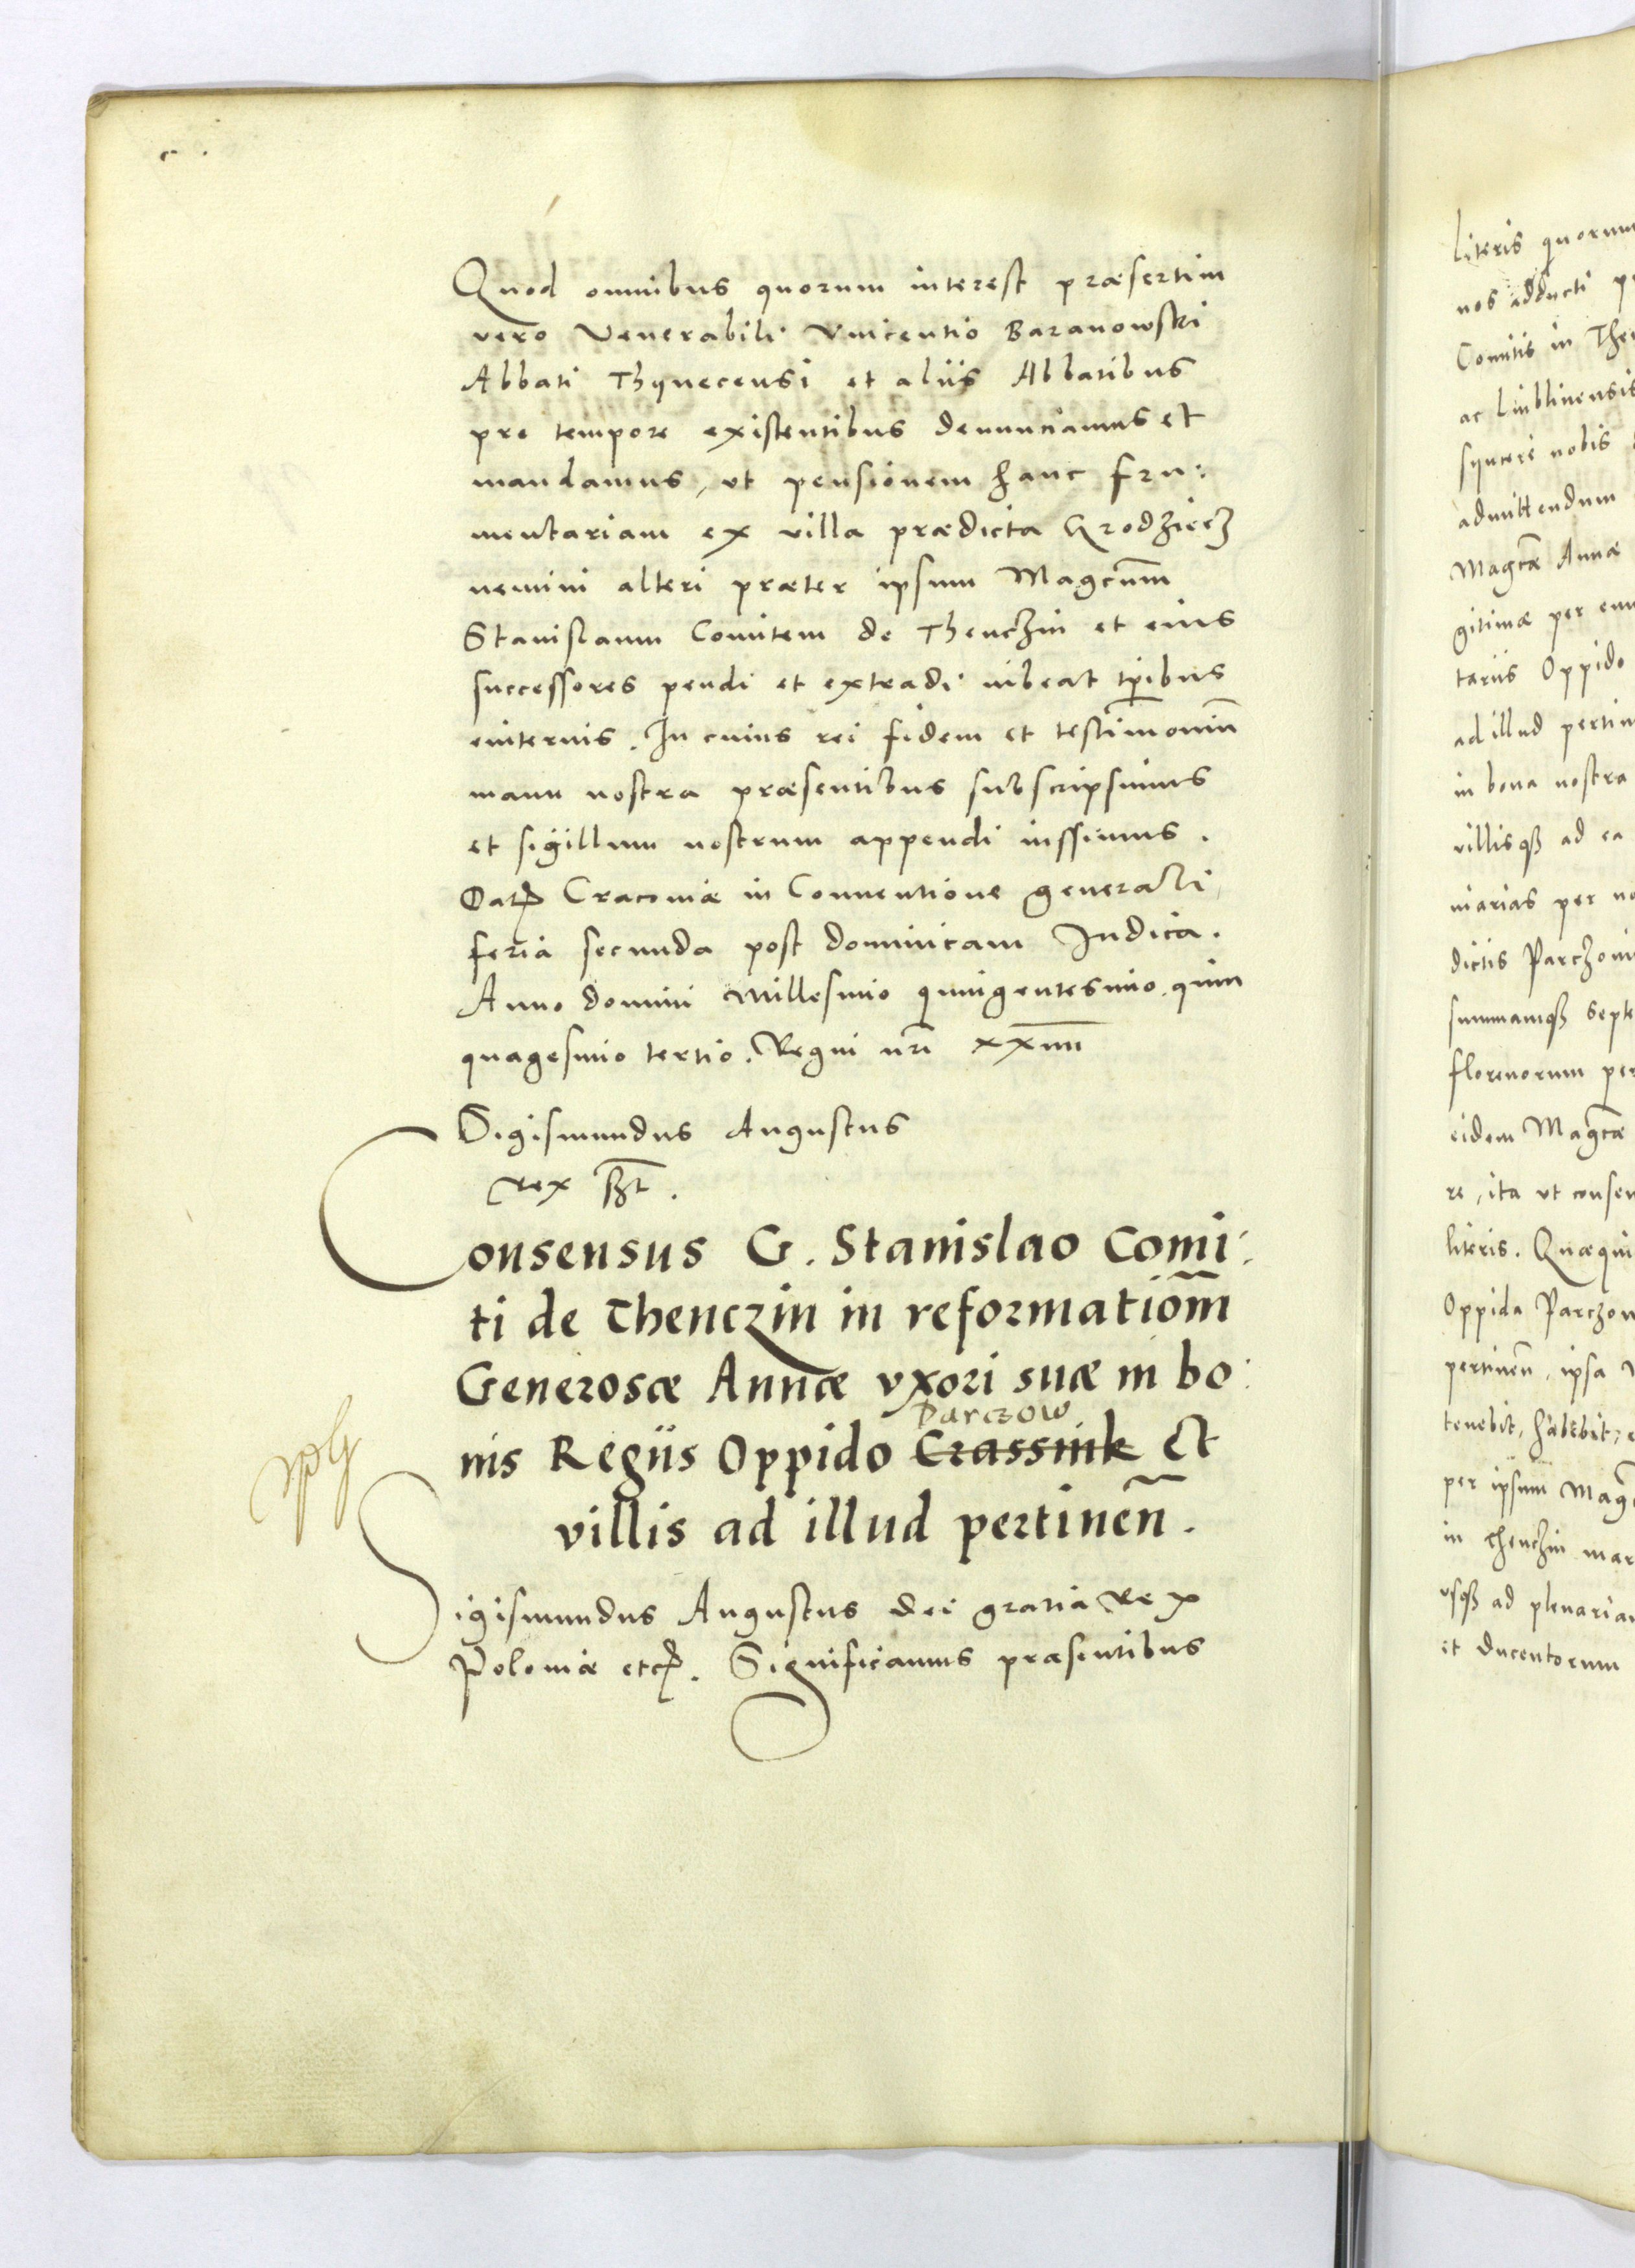 Quod omnibus quorum interest præsertim
vero Venerabili Vincentio Baranowski
Abbati Thynecensi et aliis Abbatibus
pro tempore existentibus denunciamus et
mandamus, ut pensionem hanc fru:
mentariam ex villa prædicta Grodziecz
nemini alteri præter ipsum Magcum̄
Stanislaum Comitem de Thenczin et eius
successores pendi et extradi iubeat tp̄ibus
euiternis. In cuius rei fidem et testimoniū
manu nostra præsentibus subscripsimus
et sigillum nostrum appendi iussimus.
Dat Cracouiæ in Conuentione generali
feria secunda post dominicam Iudica.
Anno domini Millesimo quingentesimo quin
quagesimo tertio. Regni nr̄i xxiiii
Sigismundus Augustus
Rex sszt.
Consensus G. Stanislao Comi:
ti de Thenczin in reformatiōm
Generosæ Annæ vxori suæ in bo:
Parczow
nis Regiis Oppido Crassnik et
villis ad illud pertineñ.
Sigismundus Augustus dei gratia Rex
Poloniæ etc. Significamus præsentibus
literis quorum
nos adducti
Comitis in
ac Lublinensis
syncere nobis
admittendum
Magcæ Annæ
gitimæ per
tariis Oppido
ad illud
in bona nostra
villisqȝ ad ea
niarias per
dictis
summamqȝ
florenorum
eidem Magcæ
re, ita ut
literis.
Oppida
pertineñ, ipsa
tenebit, habebit,
per ipsum
in Thenczin
usqȝ ad
et ducentorum